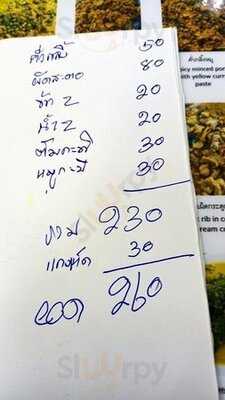 คั่วกลิ้ง 50
ผัดสะตอ 80
ข้าว 2 20
น้ำ 2 20
ต้มกะทิ 30
หมูกะปิ 30
รวม 230
แกงจืด 30
ยอด 260
คั่วกลิ้งหมู
icy minced por
with yellow curr
paste
rib in c
ream c
Sluurpy